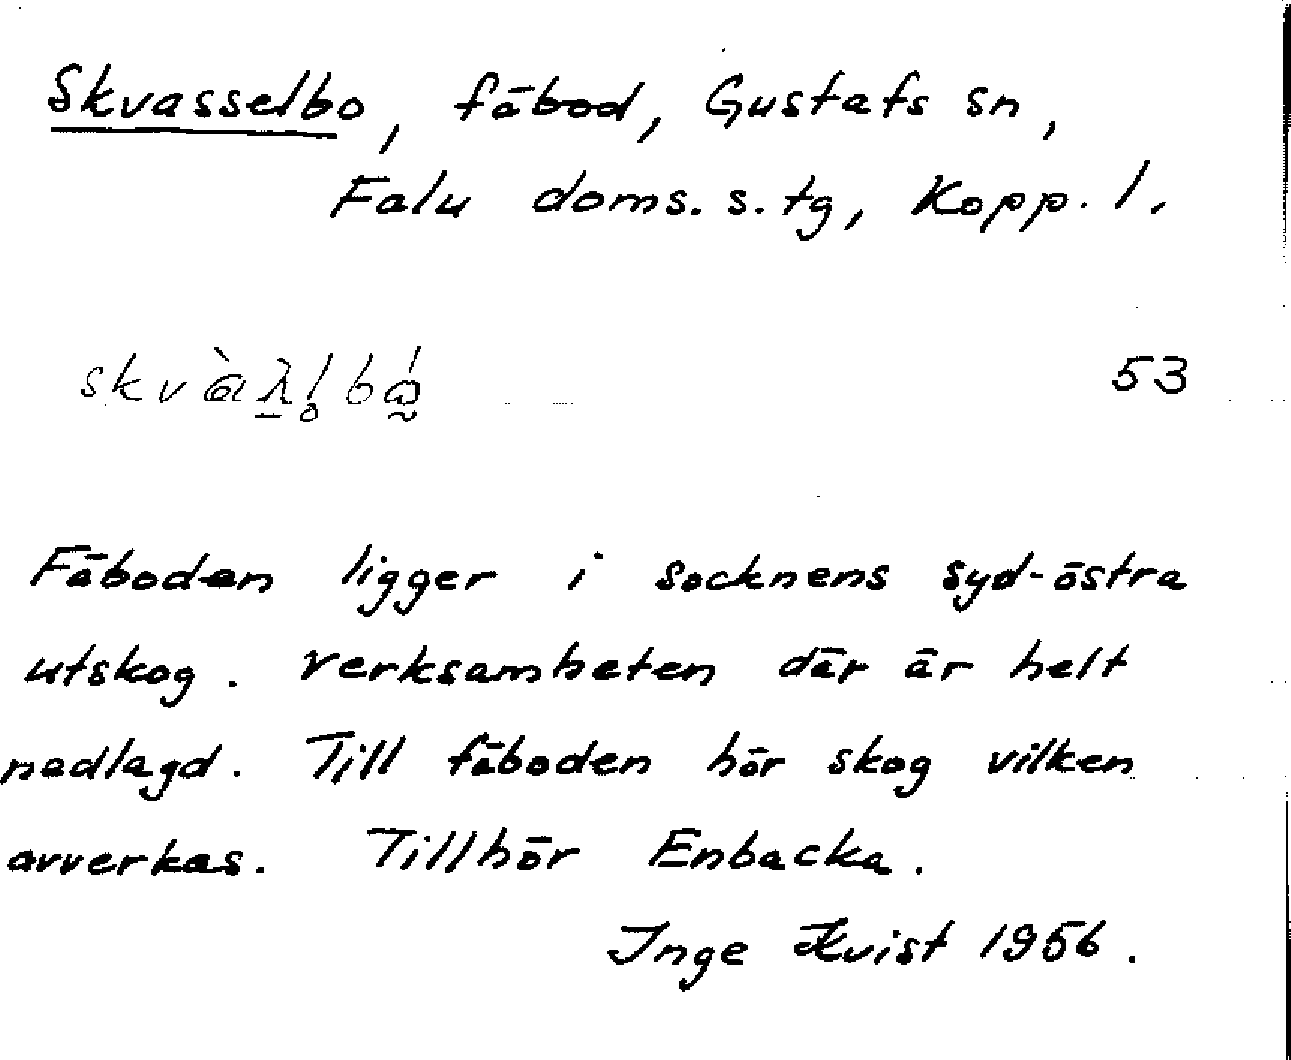 Skvasselbo, fäbod, Gustafs sn,
Falu doms. s. tg, Kopp. l.
53
Fäboden ligger i socknens syd-östra
utskog. Verksamheten där är helt
nedlagd. Till fäboden hör skog vilken
avverkas. Tillhör Enbacka.
Inge Kvist 1956.